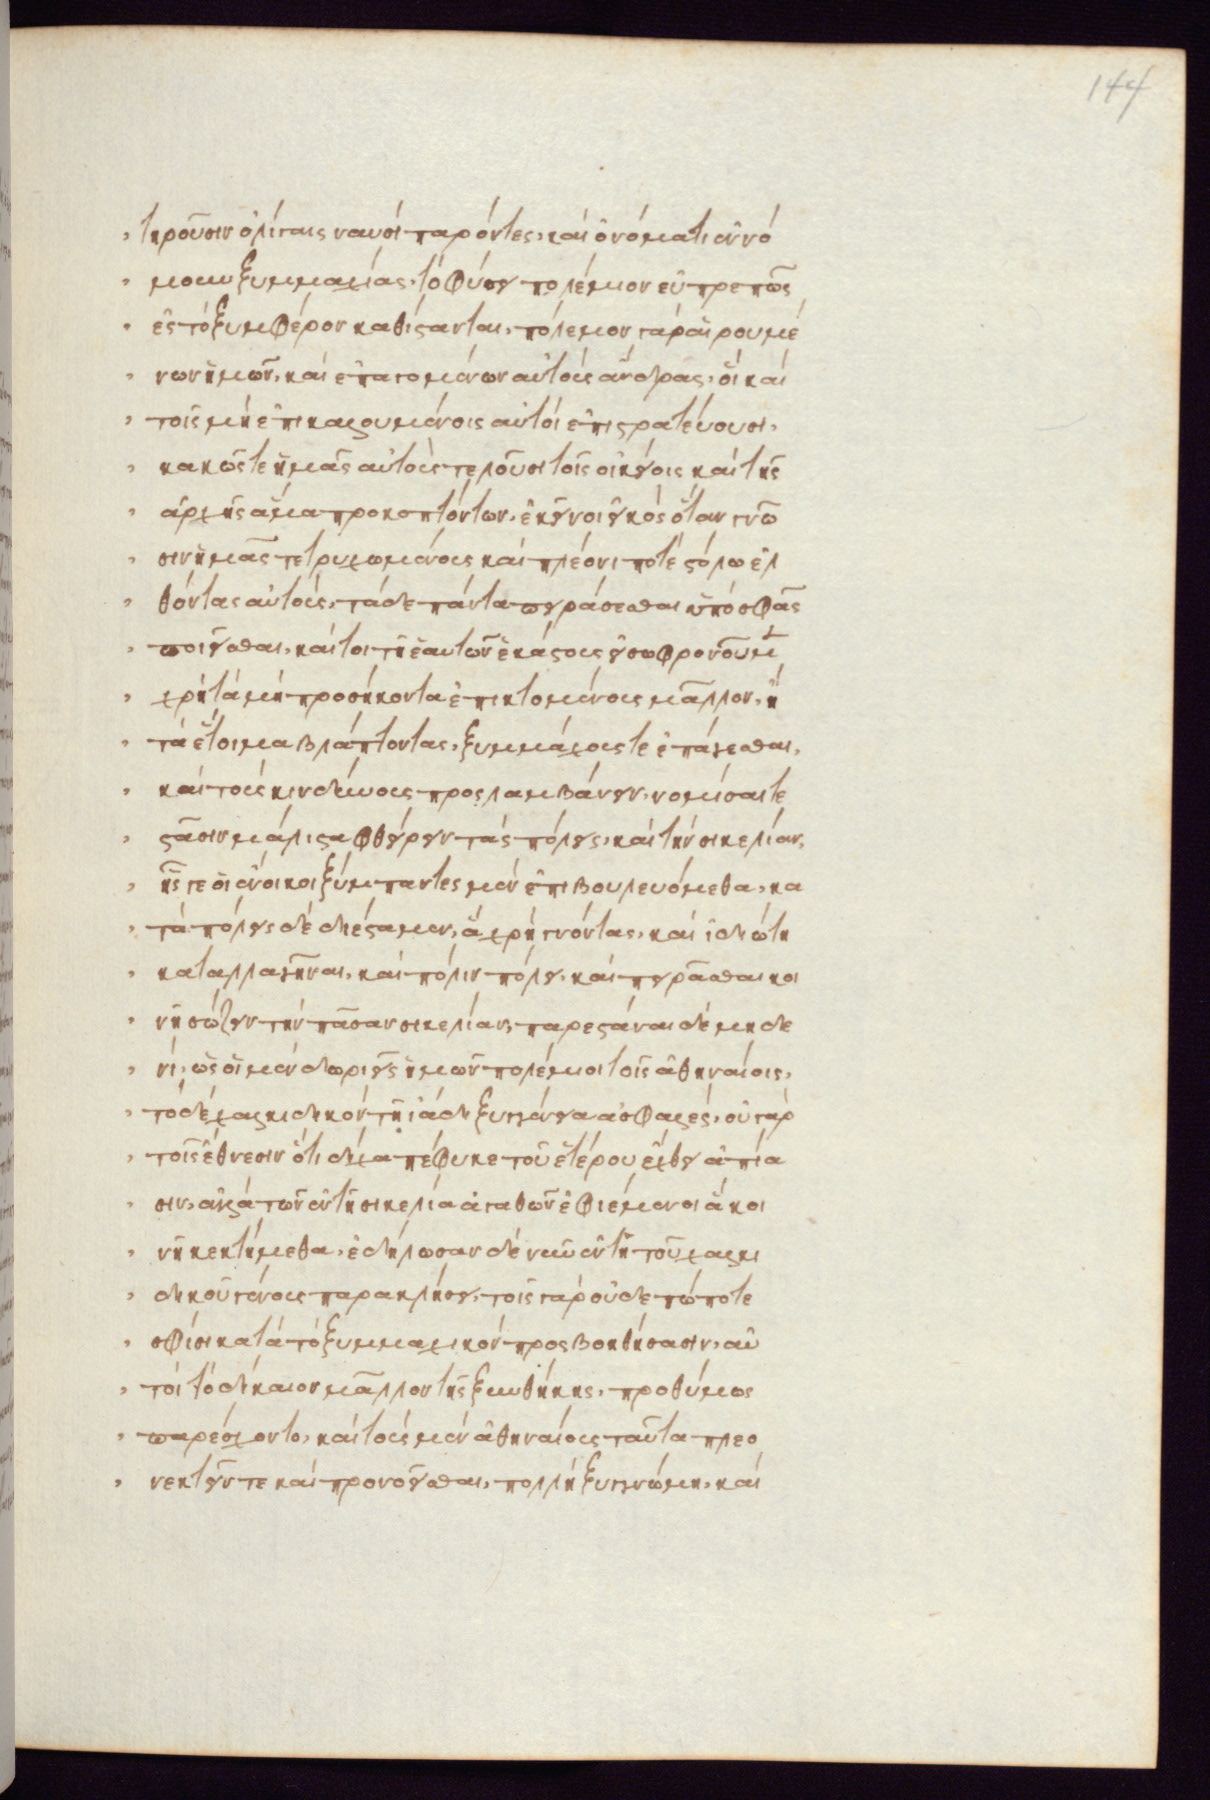 144
τηροῦσιν ὀλίγαις ναυσὶ παρόντες, καὶ ὀνόματι ἐννό
μου ξυμμαχίας, τὸ φύσει πολέμιον εὐπρεπῶς
ἐς τὸ ξυμφέρον καθίστανται, πόλεμον γὰρ αἱρουμέ
νων ἡμῶν, καὶ ἐπαγομένων αὐτοὺς ἄνδρας, οἳ καὶ
τοῖς μὴ ἐπικαλουμένοις αὐτοὶ ἐπιστρατεύουσι,
κακῶς τε ἡμᾶς αὐτοὺς τελοῦσι τοῖς οἰκείοις καὶ τῆς
ἀρχῆς ἅμα προκοπτόντων, ἐκείνοι εἰκὸς ὅταν γνῶ
σιν ἡμᾶς τετρυχωμένους καὶ πλέονι ποτὲ στόλω ἐλ
θόντας αὐτοὺς, τάδε πάντα πειράσεσθαι ὑπὸ σφᾶς
ποιεῖσθαι, καίτοι τῆ ἑαυτῶν ἑκάστους εἰ σωφρονοῦμεν
χρὴ τὰ μὴ προσήκοντα ἐπικτομένους μᾶλλον, ἢ
τὰ ἕτοιμα βλάπτοντας, ξυμμάχους τε ἐπάγεσθαι,
καὶ τοὺς κινδύνους προςλαμβάνειν, νομίσαι τε
στᾶσιν μάλιστα φθείρειν τὰς πόλεις, καὶ τὴν σικελίαν,
ἧς γε οἱ ἔνοικοι ξύμπαντες μὲν ἐπιβουλευόμεθα, κα
τὰ πόλεις δὲ διέσταμεν, ἃ χρὴ γνόντας, καὶ ἰδιώτη
καταλλαγῆναι, καὶ πόλιν πόλει, καὶ πειρᾶσθαι κοι
νῆ σώζειν τὴν πᾶσαν σικελίαν, παρεστάναι δὲ μηδε
νὶ, ὡς οἱ μὲν δωριεῖς ἡμῶν πολέμιοι τοῖς ἀθηναίοις,
τὸ δὲ χαλκιδικὸν τῆ ἰάδι ξυγγένεια ἀσφαλές, οὐ γὰρ
τοῖς ἔθνεσιν ὅτι δίχα πέφυκε τοῦ ἑτέρου ἔχθει ἀπία
σιν, ἀλλὰ τῶν ἐν τῆ σικελία ἀγαθῶν ἐφιέμενοι ἃ κοι
νῆ κεκτήμεθα, ἐδήλωσαν δὲ νῦν ἐν τῆ τοῦ χαλκι
δικοῦ γένους παρακλήσει, τοῖς γὰρ οὐδε πώποτε
σφίσι κατὰ τὸ ξυμμαχικὸν προςβοηθήσασιν, αὐ
τοὶ τὸ δίκαιον μᾶλλον τῆς ξυνθήκης, προθύμως
παρέσχοντο, καὶ τοὺς μὲν ἀθηναίους ταῦτα πλεο
νεκτεῖν τε καὶ προνοεῖσθαι, πολλὴ ξυγγνώμη, καὶ